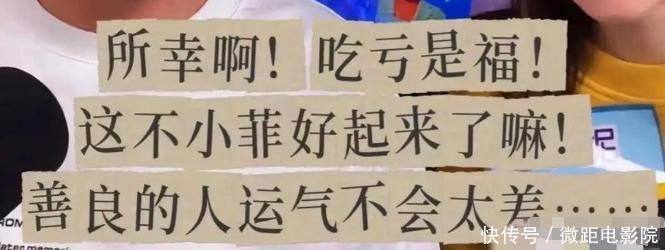 所幸啊！吃亏是福！
这不小菲好起来了嘛！
善良的人运气不会太差……
ROM
later memor
快传号／微距电影院